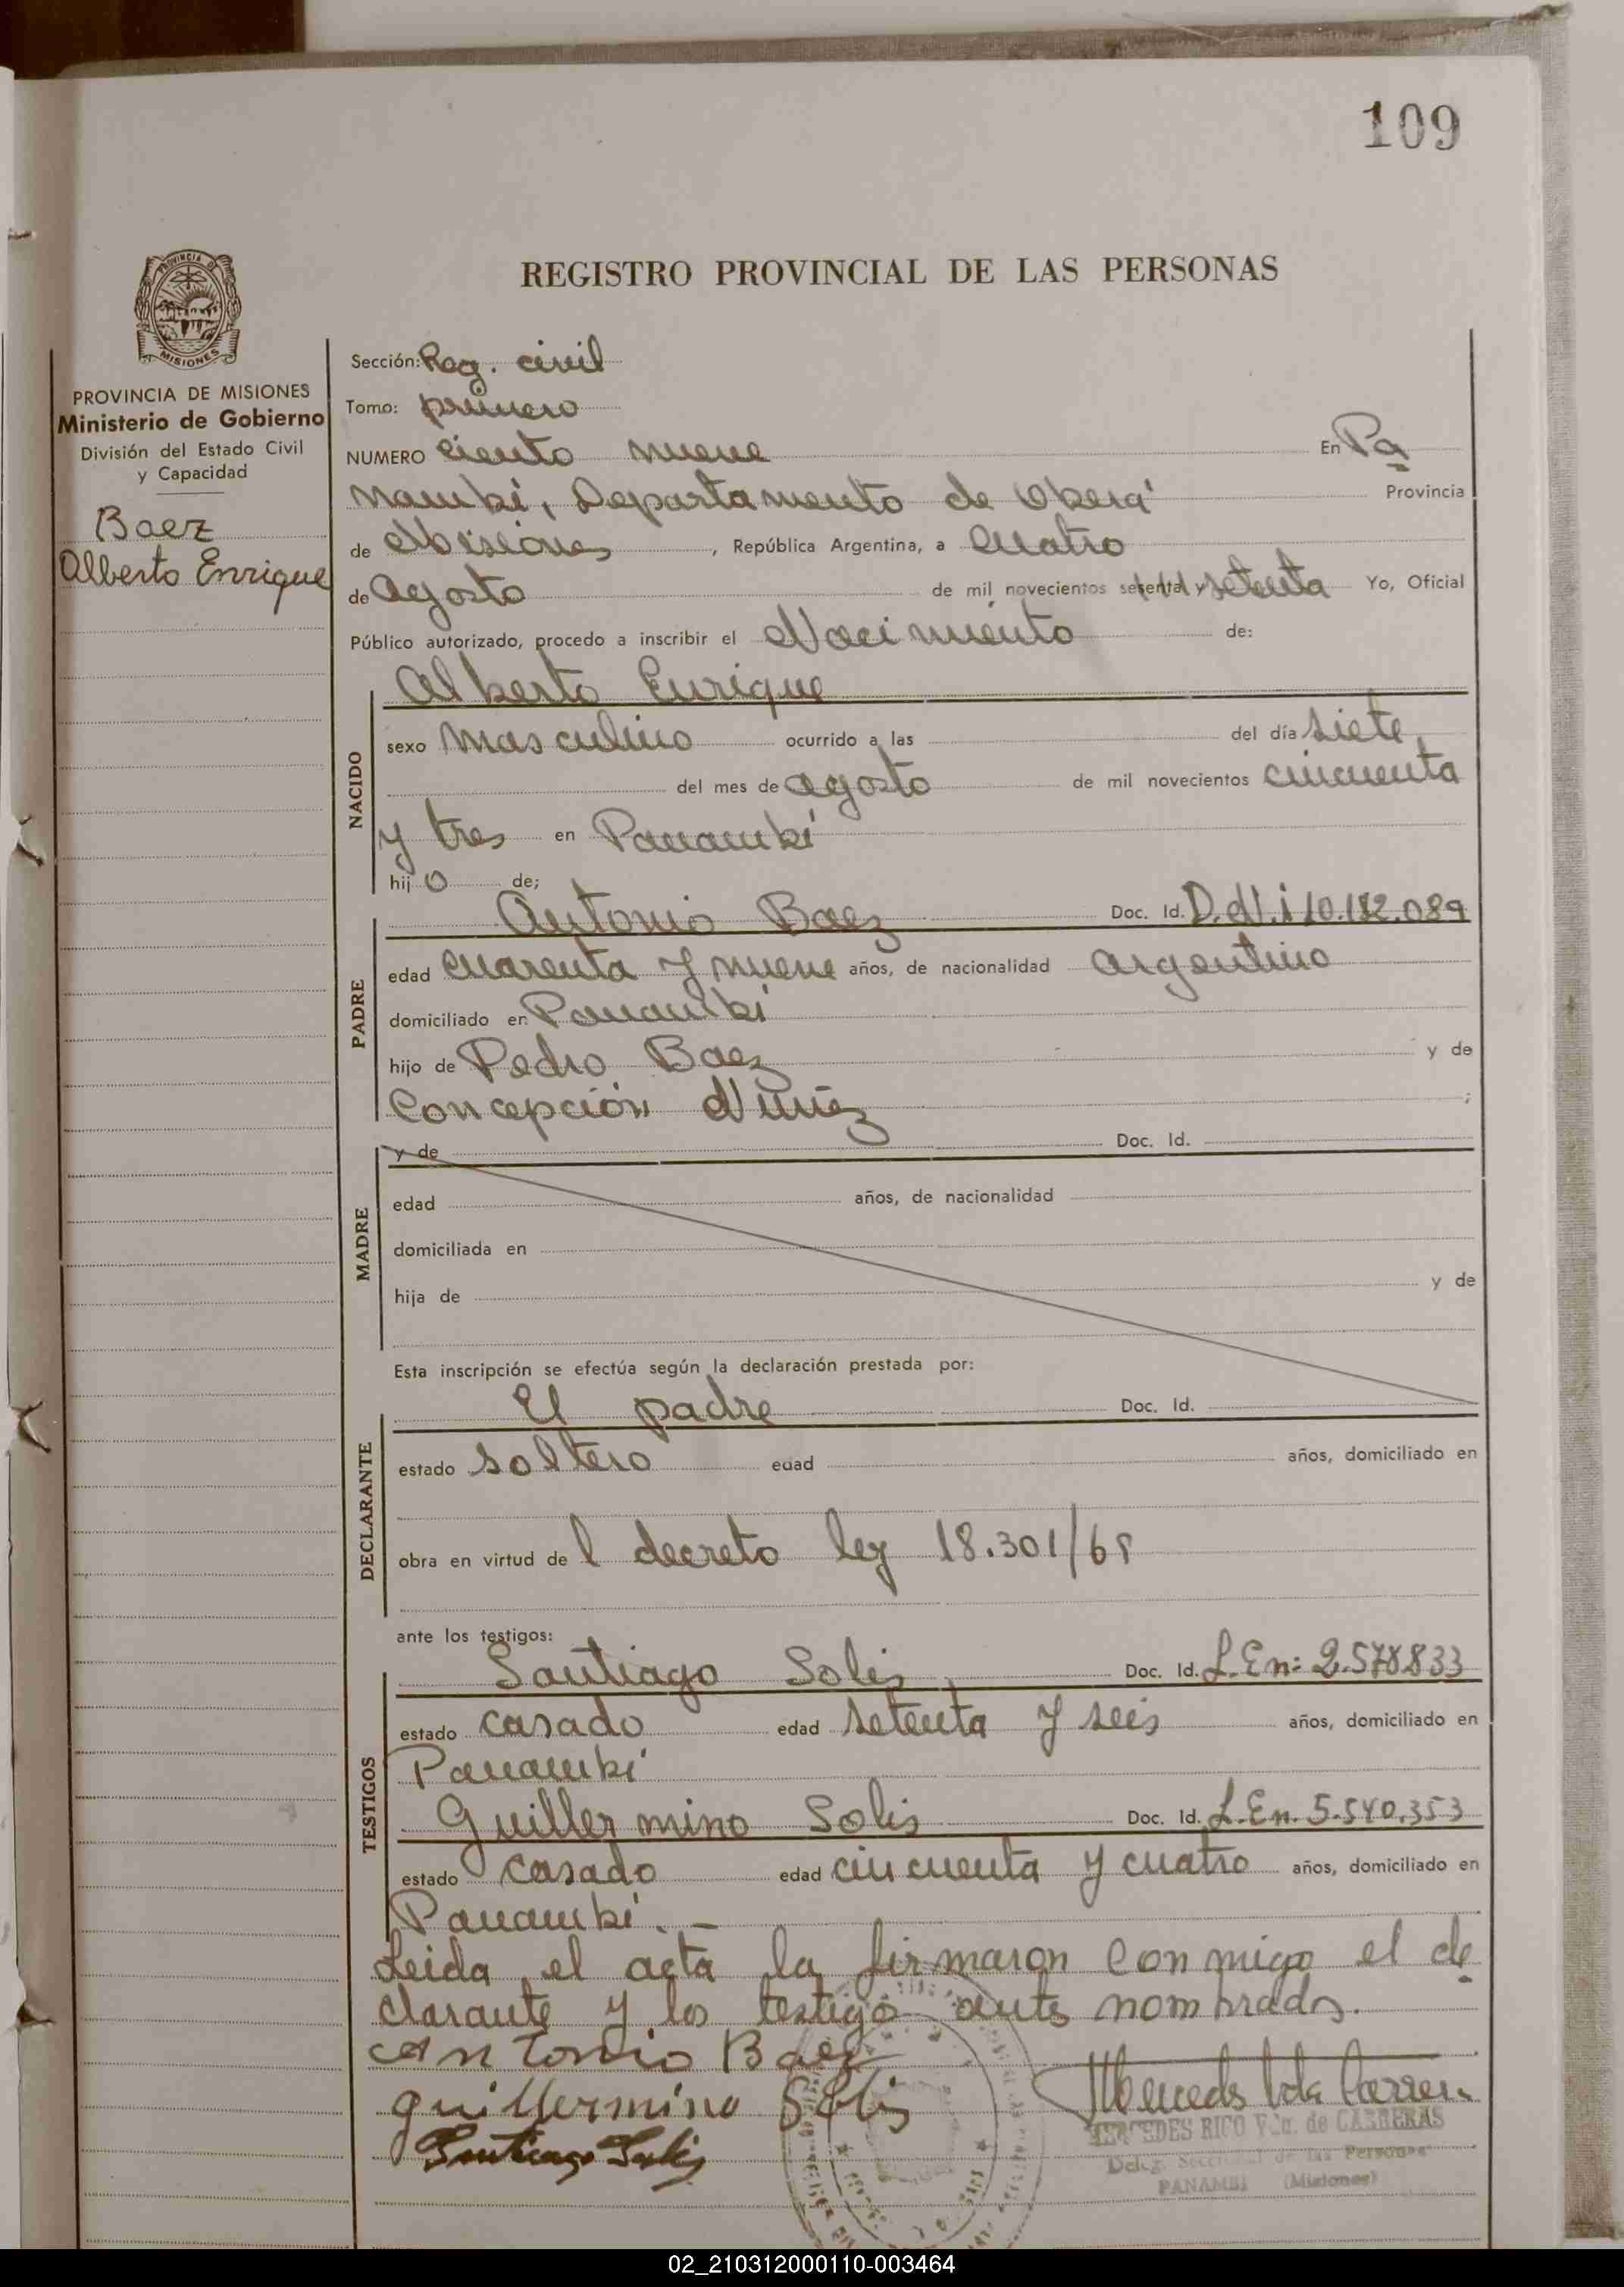 109
REGISTRO PROVINCIAL DE LAS PERSONAS
PROVINCIA DE MISIONES
PROVINCIA DE MISIONES
Ministerio de Gobierno
División del Estado Civil
y Capacidad
Baez
Alberto Enrique
Sección: Reg. civil
Tomo: primero
NUMERO ciento nueve En Pa
nambí, Departamento de Oberá Provincia
de Misiones, República Argentina, a cuatro
de agosto de mil novecientos setenta y setenta Yo, Oficial
Público autorizado, procedo a inscribir el Nacimiento de:
Alberto Enrique
NACIDO
sexo masculino ocurrido a las del día siete
del mes de agosto de mil novecientos cincuenta
y tres en Panambí
hijo de;
Antonio Baez Doc. Id. D.N.i 10.182.089
PADRE
edad cuarenta y nueve años, de nacionalidad argentino
domiciliado en Panambí
hijo de Pedro Baez y de
Concepción Núñez ;
y de Doc. Id.
MADRE
edad años, de nacionalidad
domiciliada en
hija de y de
Esta inscripción se efectúa según la declaración prestada por:
El padre Doc. Id.
DECLARANTE
estado soltero edad años, domiciliado en
obra en virtud de l decreto ley 18.301/69
ante los testigos:
Santiago Solis Doc. Id. L.En: 2.578833
TESTIGOS
estado casado edad setenta y seis años, domiciliado en
Panambí
Guillermino Solis Doc. Id. L.En. 5.540.353
estado casado edad cincuenta y cuatro años, domiciliado en
Panambí. –
Leida el acta la firmaron conmigo el de
clarante y los testigos antes nombrados.
Antonio Baez
guillermino Solis
Santiago Solis
MERCEDES RICO Vda. de CARRERAS
Deleg. Seccional de las Personas
PANAMBI (Misiones)
02_210312000110-003464